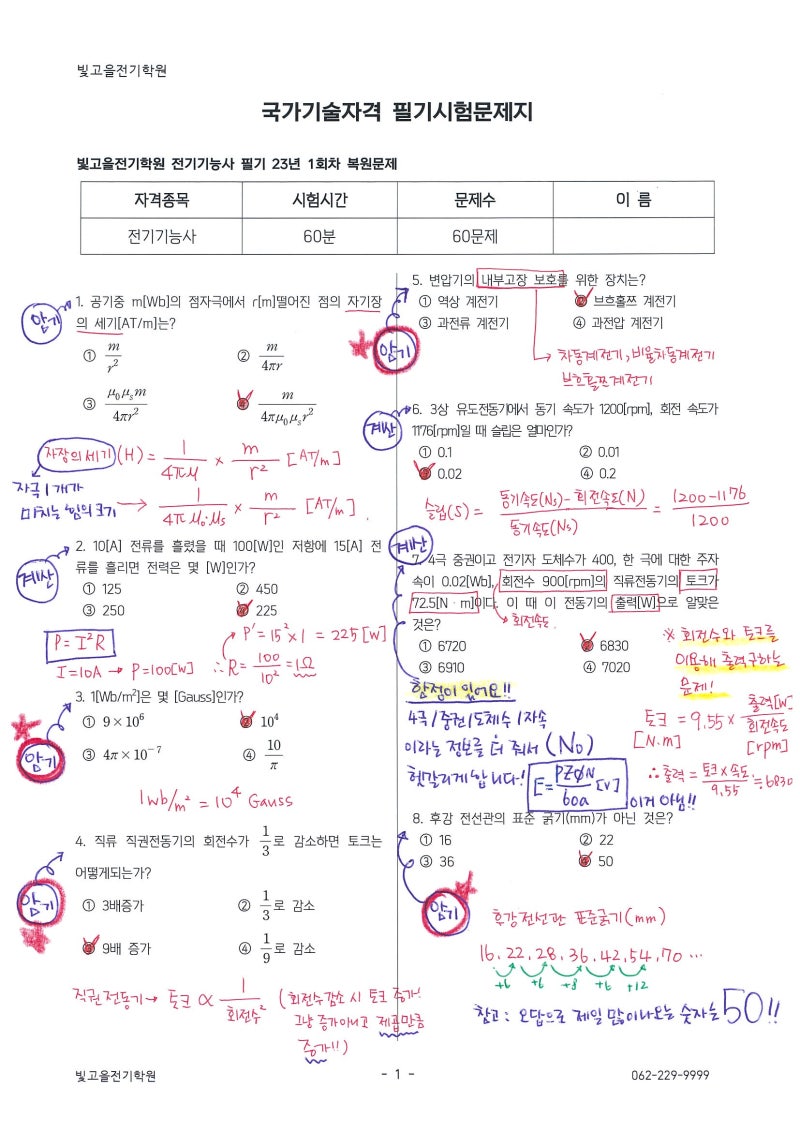 빛고을전기학원
국가기술자격 필기시험문제지
빛고을전기학원 전기기능사 필기 23년 1회차 복원문제
자격종목 시험시간 문제수 이 름
전기기능사 60분 60문제
암기
1. 공기중 m[Wb]의 점자극에서 r[m]떨어진 점의 자기장
의 세기[AT/m]는?
① m/r² ② m/4πr
③ μ₀μₛm/4πr² ④ m/4πμ₀μₛr²
자장의 세기(H) = 1/4πμ × m/r² [AT/m]
자극 1개가
미치는 힘의 크기 → 1/4πμ₀·μₛ × m/r² [AT/m].
계산
2. 10[A] 전류를 흘렸을 때 100[W]인 저항에 15[A] 전
류를 흘리면 전력은 몇 [W]인가?
① 125 ② 450
③ 250 ④ 225
P=I²R
P'=15²×1=225[W]
I=10A → P=100[W] ∴R=100/10²=1Ω
암기
3. 1[Wb/m²]은 몇 [Gauss]인가?
① 9×10⁶ ② 10⁴
③ 4π×10⁻⁷ ④ 10/π
1wb/m² = 10⁴ Gauss
암기
4. 직류 직권전동기의 회전수가 1/3로 감소하면 토크는
어떻게되는가?
① 3배증가 ② 1/3로 감소
③ 9배 증가 ④ 1/9로 감소
직권전동기→ 토크 ∝ 1/회전수² (회전수감소 시 토크 증가!
그냥 증가아니고 제곱만큼
증가!!)
암기
5. 변압기의 내부고장 보호를 위한 장치는?
① 역상 계전기 ② 브흐홀쯔 계전기
③ 과전류 계전기 ④ 과전압 계전기
→ 차동계전기, 비율차동계전기
브흐홀쯔계전기
계산
6. 3상 유도전동기에서 동기 속도가 1200[rpm], 회전 속도가
1176[rpm]일 때 슬립은 얼마인가?
① 0.1 ② 0.01
③ 0.02 ④ 0.2
슬립(S) = 동기속도(Ns)-회전속도(N)/동기속도(Ns) = 1200-1176/1200
계산
7. 4극 중권이고 전기자 도체수가 400, 한 극에 대한 주자
속이 0.02[Wb], 회전수 900[rpm]의 직류전동기의 토크가
72.5[N·m]이다. 이 때 이 전동기의 출력[W]으로 알맞은
것은?
→ 회전속도
① 6720 ② 6830
③ 6910 ④ 7020
※ 회전수와 토크를
이용해 출력구하는
문제!
함정이 있어요!!
4극/중권/도체수/자속
이라는 정보를 더 줘서 (No)
헷갈리게 합니다!
E=PZØN/60a [V]
이거 아님!!
토크 = 9.55 × 출력[W]/회전속도
[N.m] [rpm]
∴출력=토크×속도/9.55≒6830
8. 후강 전선관의 표준 굵기(mm)가 아닌 것은?
① 16 ② 22
③ 36 ④ 50
암기
후강전선관 표준굵기(mm)
16, 22, 28, 36, 42, 54, 70 …
+6 +6 +8 +6 +12
참고 : 오답으로 제일 많이나오는 숫자는 50!!
빛고을전기학원 - 1 - 062-229-9999